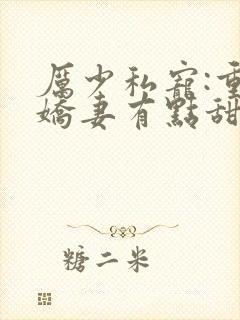 厲少私寵:重
嬌妻有點甜
糖二米